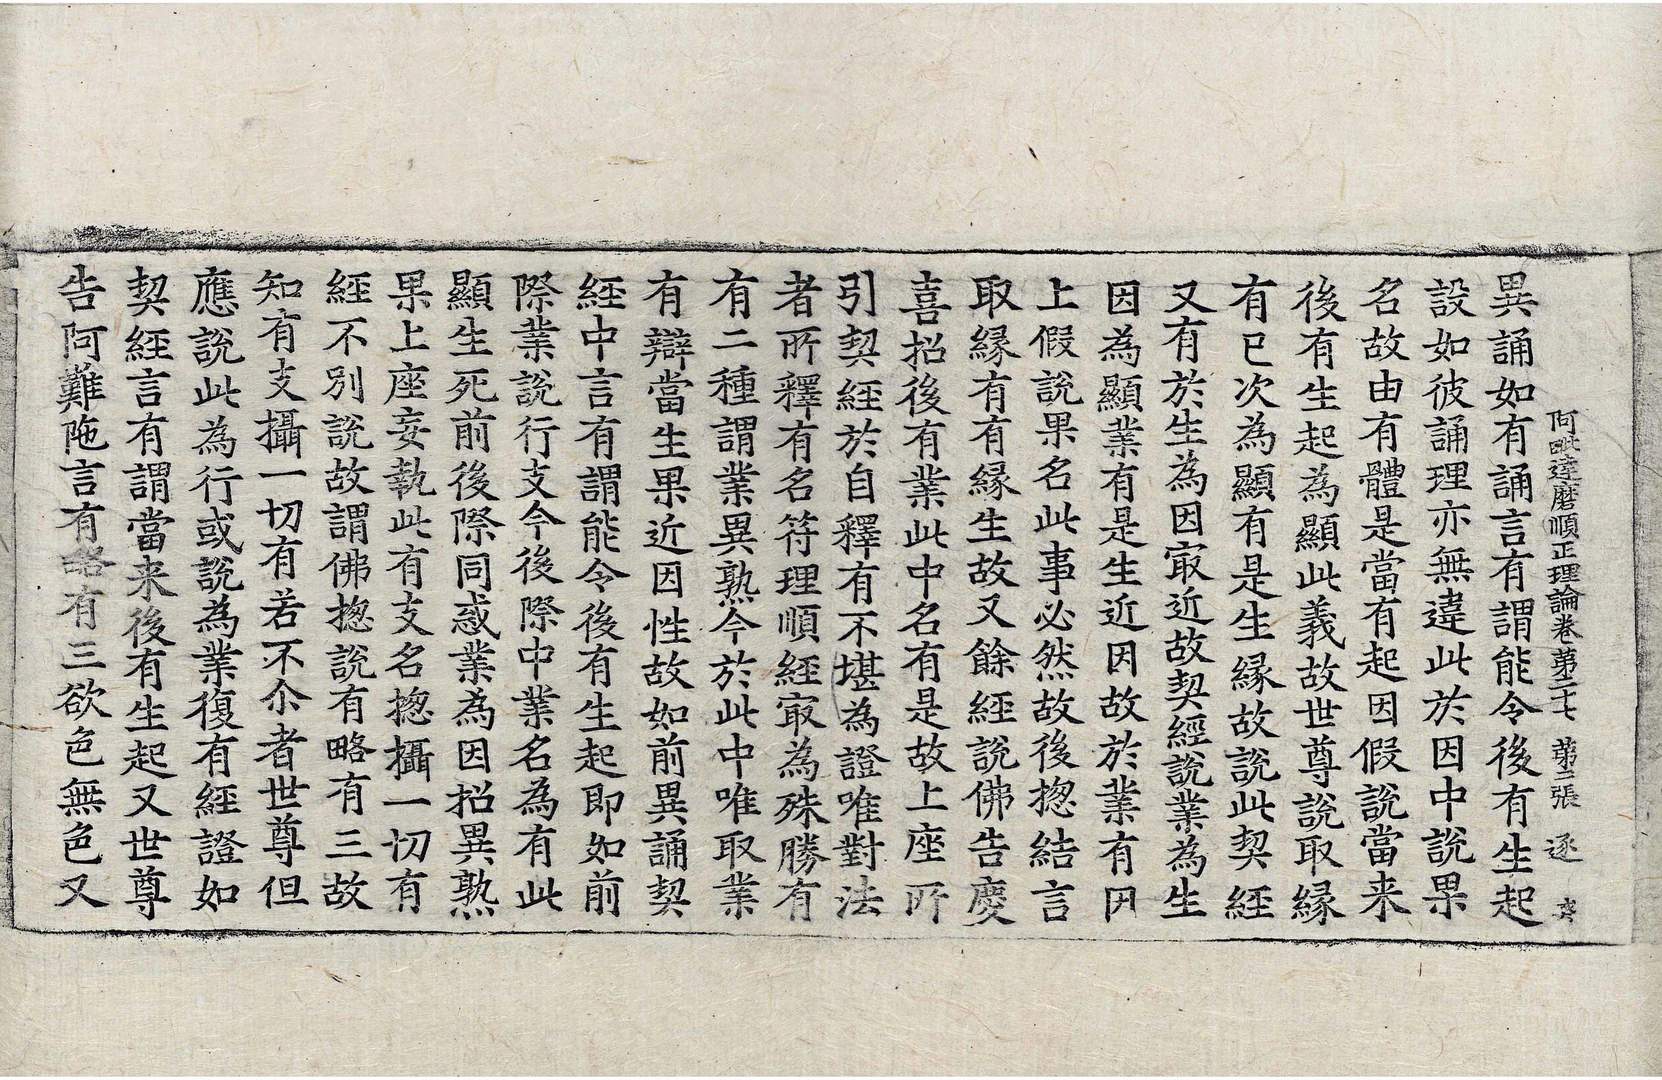 阿毗達磨順正理論卷第二十七 第二張 逐
異誦如有誦言有謂能令後有生起
設如彼誦理亦無違此於因中說果
名故由有體是當有起因假說當来
後有生起為顯此義故世尊說取緣
有已次為顯有是生緣故說此契經
又有於生為因㝡近故契經說業為生
因為顯業有是生近因故於業有因
上假說果名此事必然故後揔結言
取緣有有緣生故又餘經說佛告慶
喜招後有業此中名有是故上座所
引契經於自釋有不堪為證唯對法
者所釋有名符理順經㝡為殊勝有
有二種謂業異熟今於此中唯取業
有辯當生果近因性故如前異誦契
經中言有謂能令後有生起即如前
際業說行支今後際中業名為有此
顯生死前後際同惑業為因招異熟
果上座妄執此有支名揔攝一切有
經不別說故謂佛揔說有略有三故
知有支攝一切有若不尒者世尊但
應說此為行或說為業復有經證如
契經言有謂當来後有生起又世尊
告阿難陁言有略有三欲色無色又